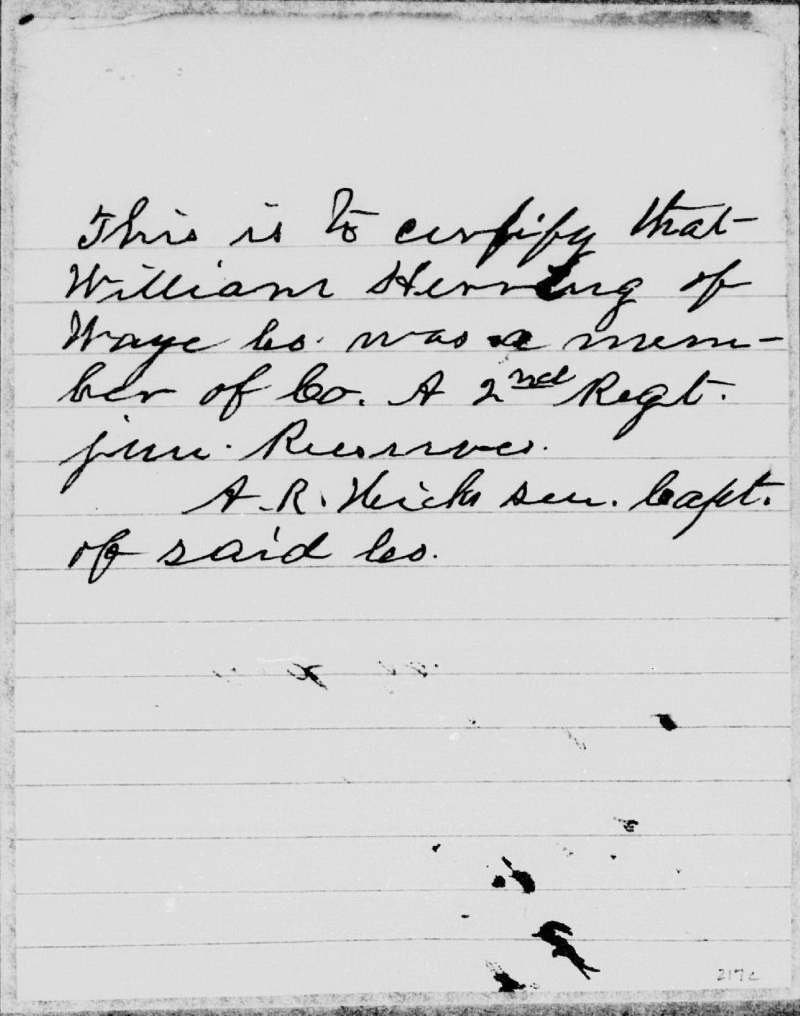 This is to certify that
William Herring of
Waye Co. was a mem-
ber of Co. A 2nd Regt.
jun. Reserves.
A. R. Hicks sen. Capt.
of said Co.
217c